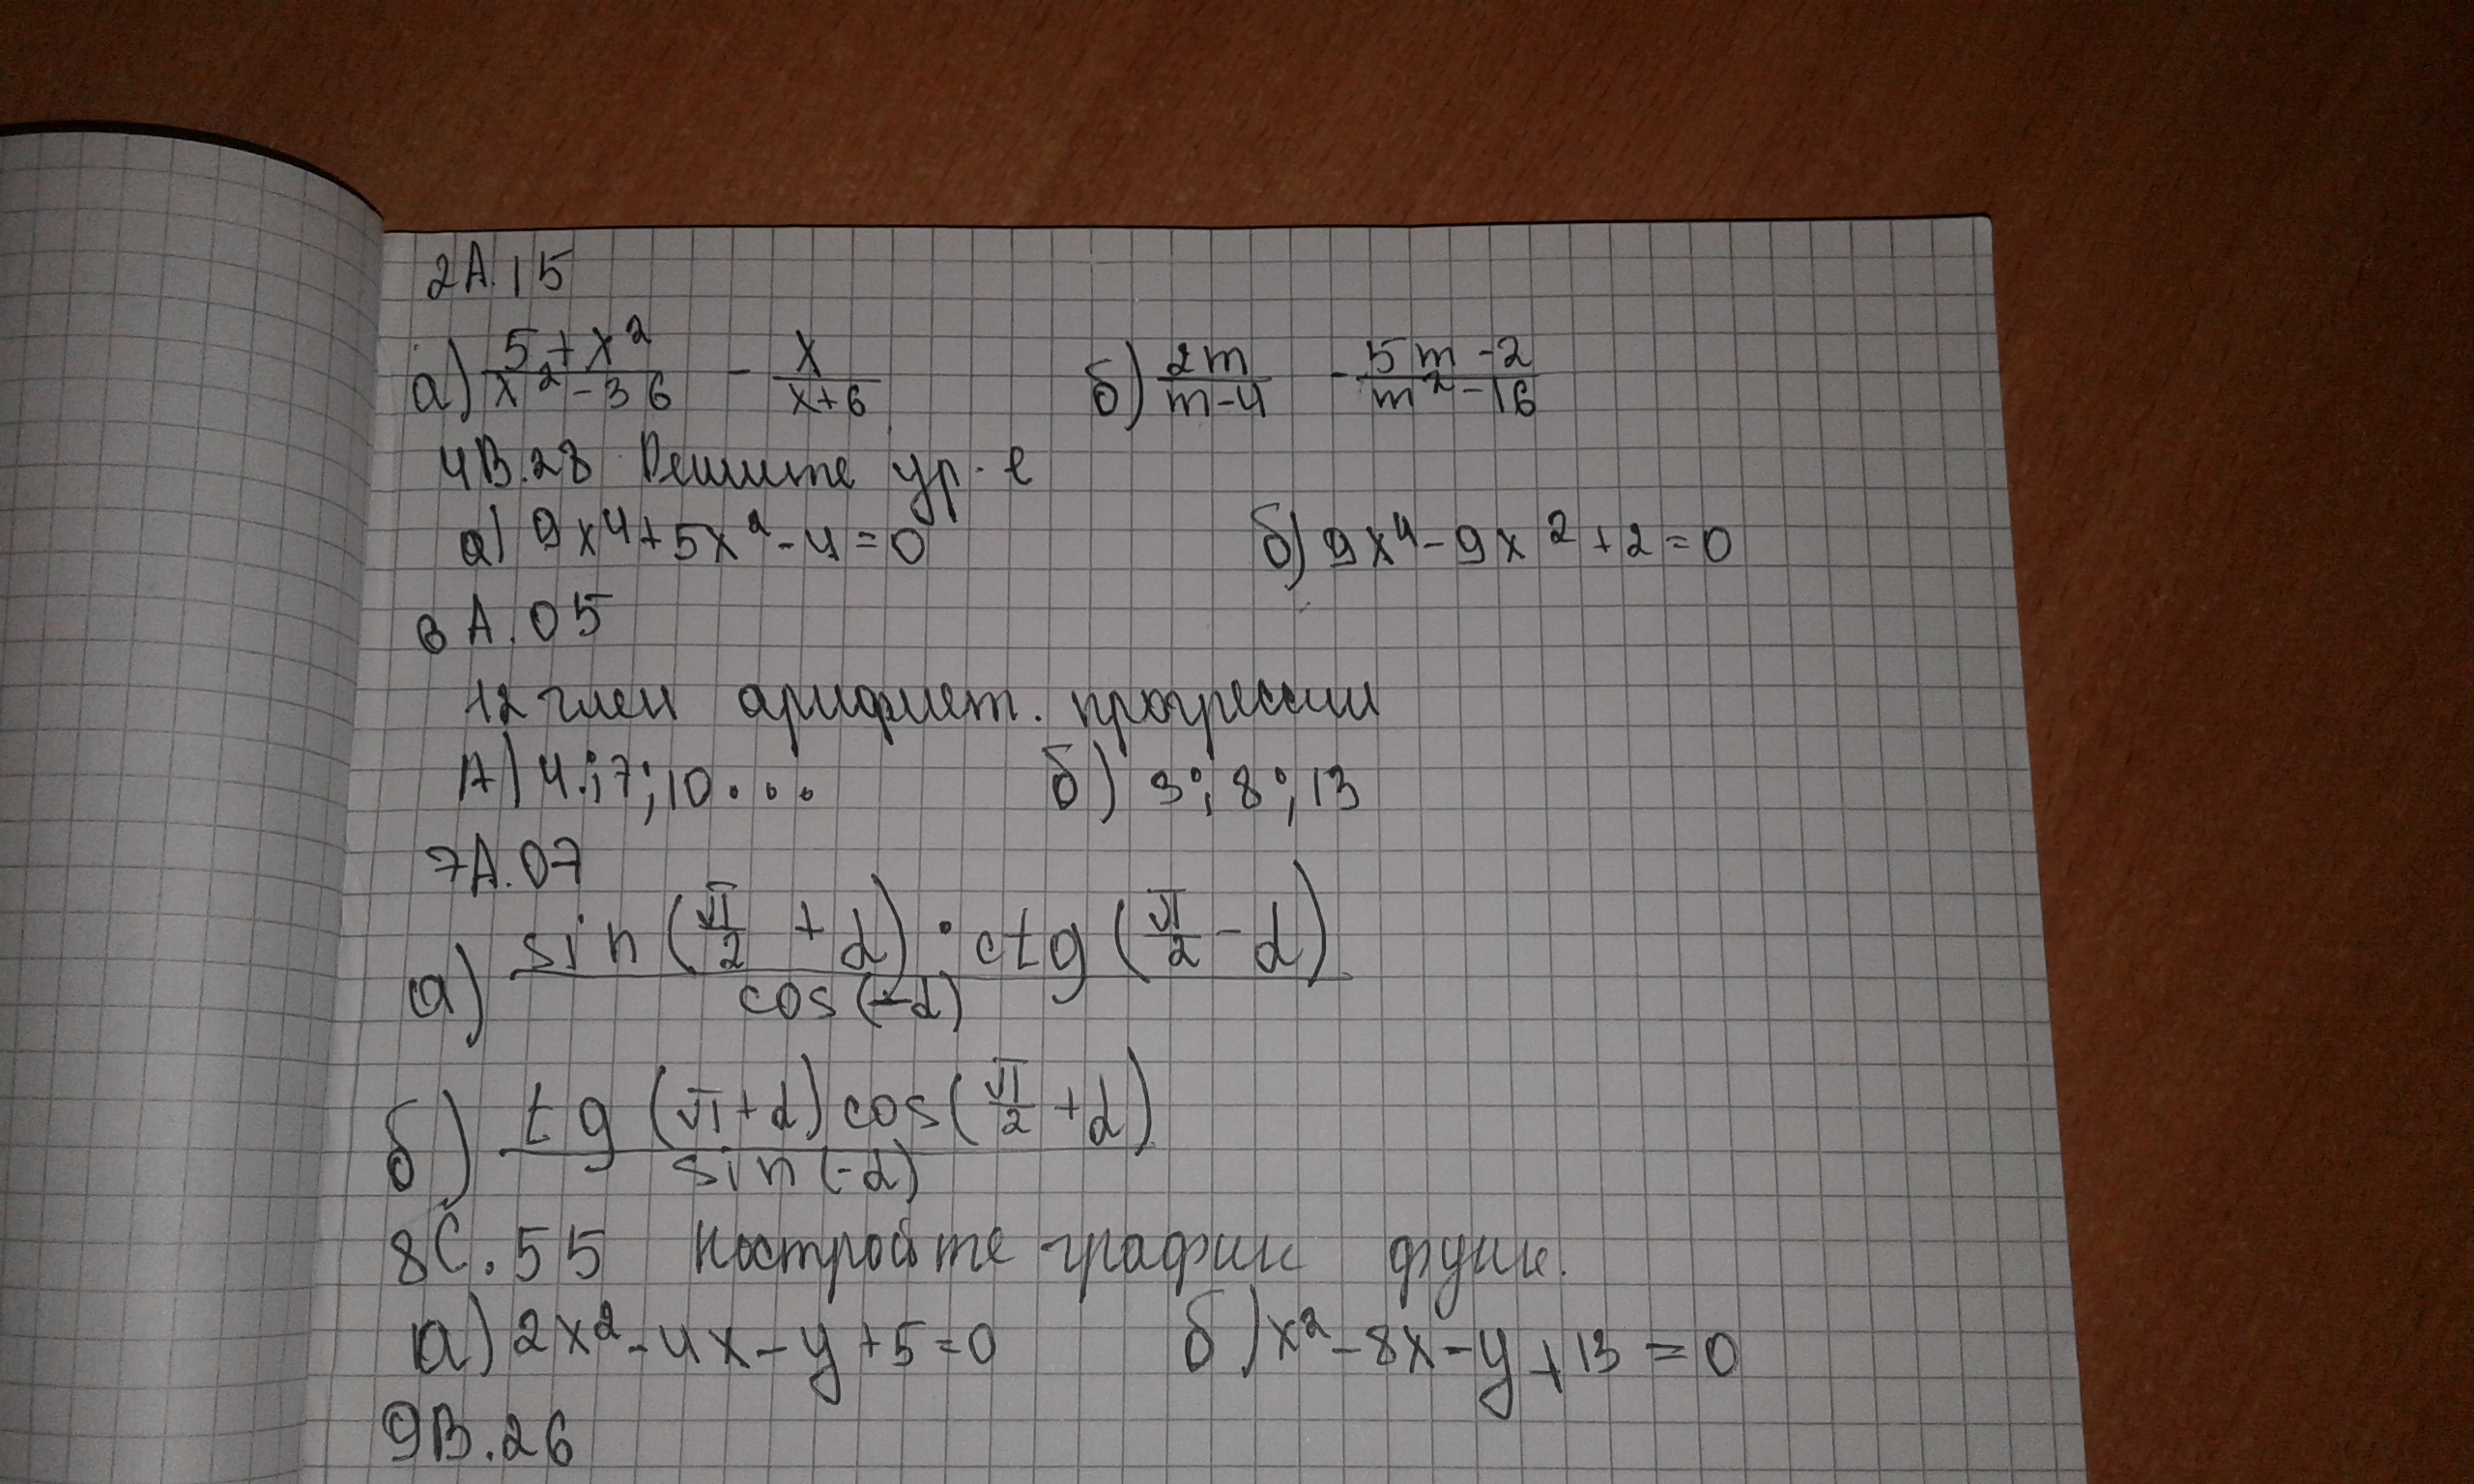 2А.15
а) (5+x²)/(x²-36) - x/(x+6) б) 2m/(m-4) - (5m-2)/(m²-16)
4В.28 Решите ур-е
а) 9x⁴+5x²-4=0 б) 9x⁴-9x²+2=0
6А.05
12 член арифмет. прогрессии
А) 4;7;10... б) 3;8;13
7А.07
а) (sin(π/2 + α) · ctg(π/2 - α))/cos(-α)
б) (tg(π+α)cos(π/2 + α))/sin(-α)
8С.55 Постройте график функ.
а) 2x²-4x-y+5=0 б) x²-8x-y+13=0
9В.26